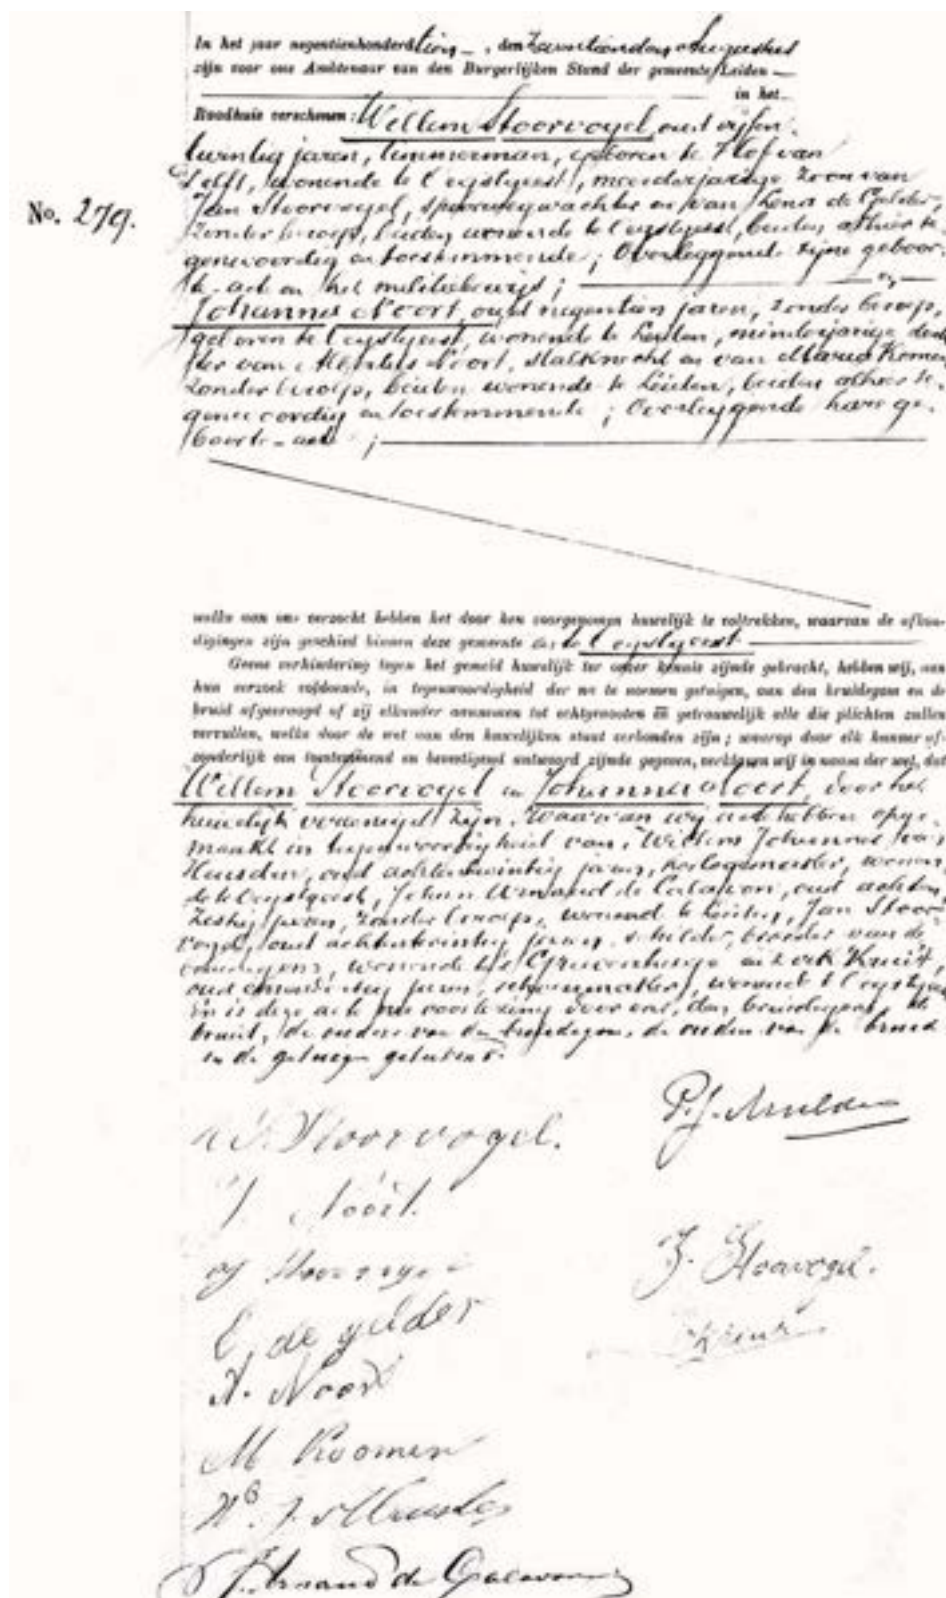 In het jaar negentienhonderd tien, den zeventienden Augustus
zijn voor ons Ambtenaar van den Burgerlijken Stand der gemeente Leiden
in het
Raadhuis verschenen: Willem Stoorvogel, oud vijfen
twintig jaren, timmerman, geboren te Hof van
Delft, wonende te Oegstgeest, meerderjarige zoon van
Jan Stoorvogel, spoorwegwachter en van Lena de Gelder,
zonder beroep, beiden wonende te Oegstgeest, beiden alhier te-
No. 279.
genwoordig en toestemmende; Overleggende zijne geboor-
te-acte en het militiebewijs; en
Johanna Noort, oud negentien jaren, zonder beroep,
geboren te Oegstgeest, wonende te Leiden, minderjarige doch
ter van Noort, stalknecht en van Maria
zonder beroep, beiden wonende te Leiden, beiden alhier te-
genwoordig en toestemmende; Overleggende hare ge-
boorte-acte;
welke aan ons verzocht hebben het door hen voorgenomen huwelijk te voltrekken, waarvan de afkon-
digingen zijn geschied binnen deze gemeente en te Oegstgeest
Geene verhindering tegen het gemeld huwelijk ter onzer kennis zijnde gebracht, hebben wij, aan
hun verzoek voldoende, in tegenwoordigheid der na te noemen getuigen, aan den bruidegom en de
bruid afgevraagd of zij elkander aannemen tot echtgenooten en getrouwelijk alle die plichten zullen
vervullen, welke door de wet aan den huwelijken staat verbonden zijn; waarop door elk hunner af-
zonderlijk een toestemmend en bevestigend antwoord zijnde gegeven, verklaren wij in naam der wet, dat
Willem Stoorvogel en Johanna Noort, door het
huwelijk vereenigd zijn. Waarvan wij acte hebben opge-
maakt in tegenwoordigheid van: Willem Johannes van
Heusden, oud achtentwintig jaren, wonen
de te Oegstgeest, Johan Armand de Calavon, oud achten
zestig jaren, zonder beroep, wonende te Leiden, Jan Stoor-
vogel, oud achtentwintig jaren, schilder, broeder van de
bruidegom, wonende te 's Gravenhage en
oud jaren, schoenmaker, wonende te Oegstgeest
En is deze acte na voorlezing door ons, den bruidegom, de
bruid, de ouders van den bruidegom, de ouders van de bruid
en de getuigen geteekend.
W. Stoorvogel. P. J. Mulder
J. Noort.
J. Stoorvogel J. Stoorvogel.
L. de gelder
A. Noort
M Koomen